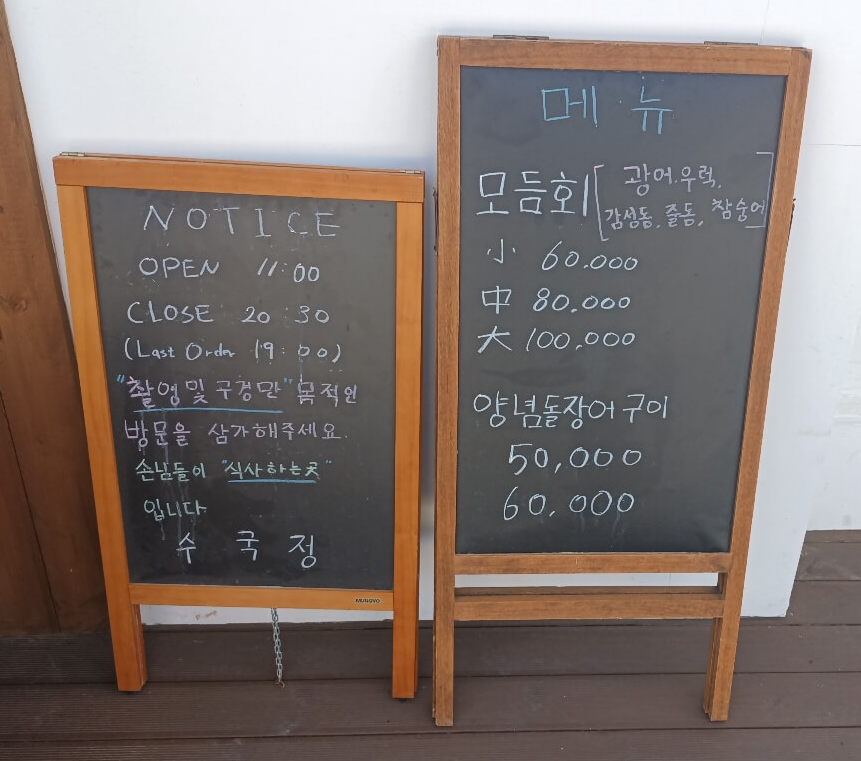 NOTICE
OPEN 11:00
CLOSE 20:30
(Last Order 19:00)
"촬영 및 구경만" 목적인
방문을 삼가해주세요.
손님들이 "식사하는곳"
입니다
수국정
MUNGYO
메뉴
모듬회 [광어.우럭.
감성돔, 줄돔, 참숭어]
小 60.000
中 80.000
大 100,000
양념돌장어구이
50,000
60.000